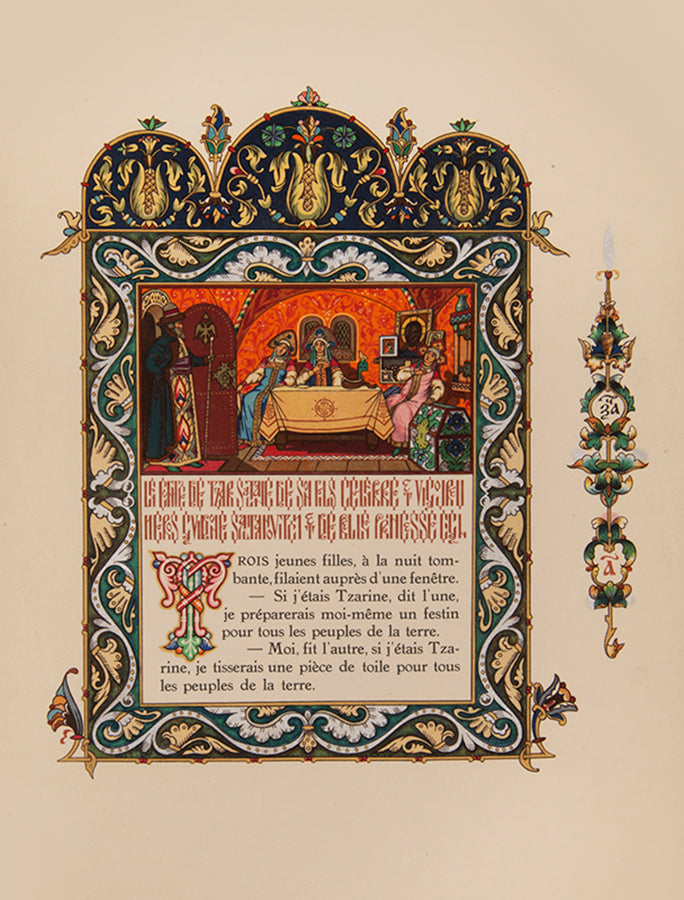 LE CONTE DE TZAR SALTAN DE SON FILS
TROIS jeunes filles, à la nuit tom-
bante, filaient auprès d'une fenêtre.
— Si j'étais Tzarine, dit l'une,
je préparerais moi-même un festin
pour tous les peuples de la terre.
— Moi, fit l'autre, si j'étais Tza-
rine, je tisserais une pièce de toile pour tous
les peuples de la terre.